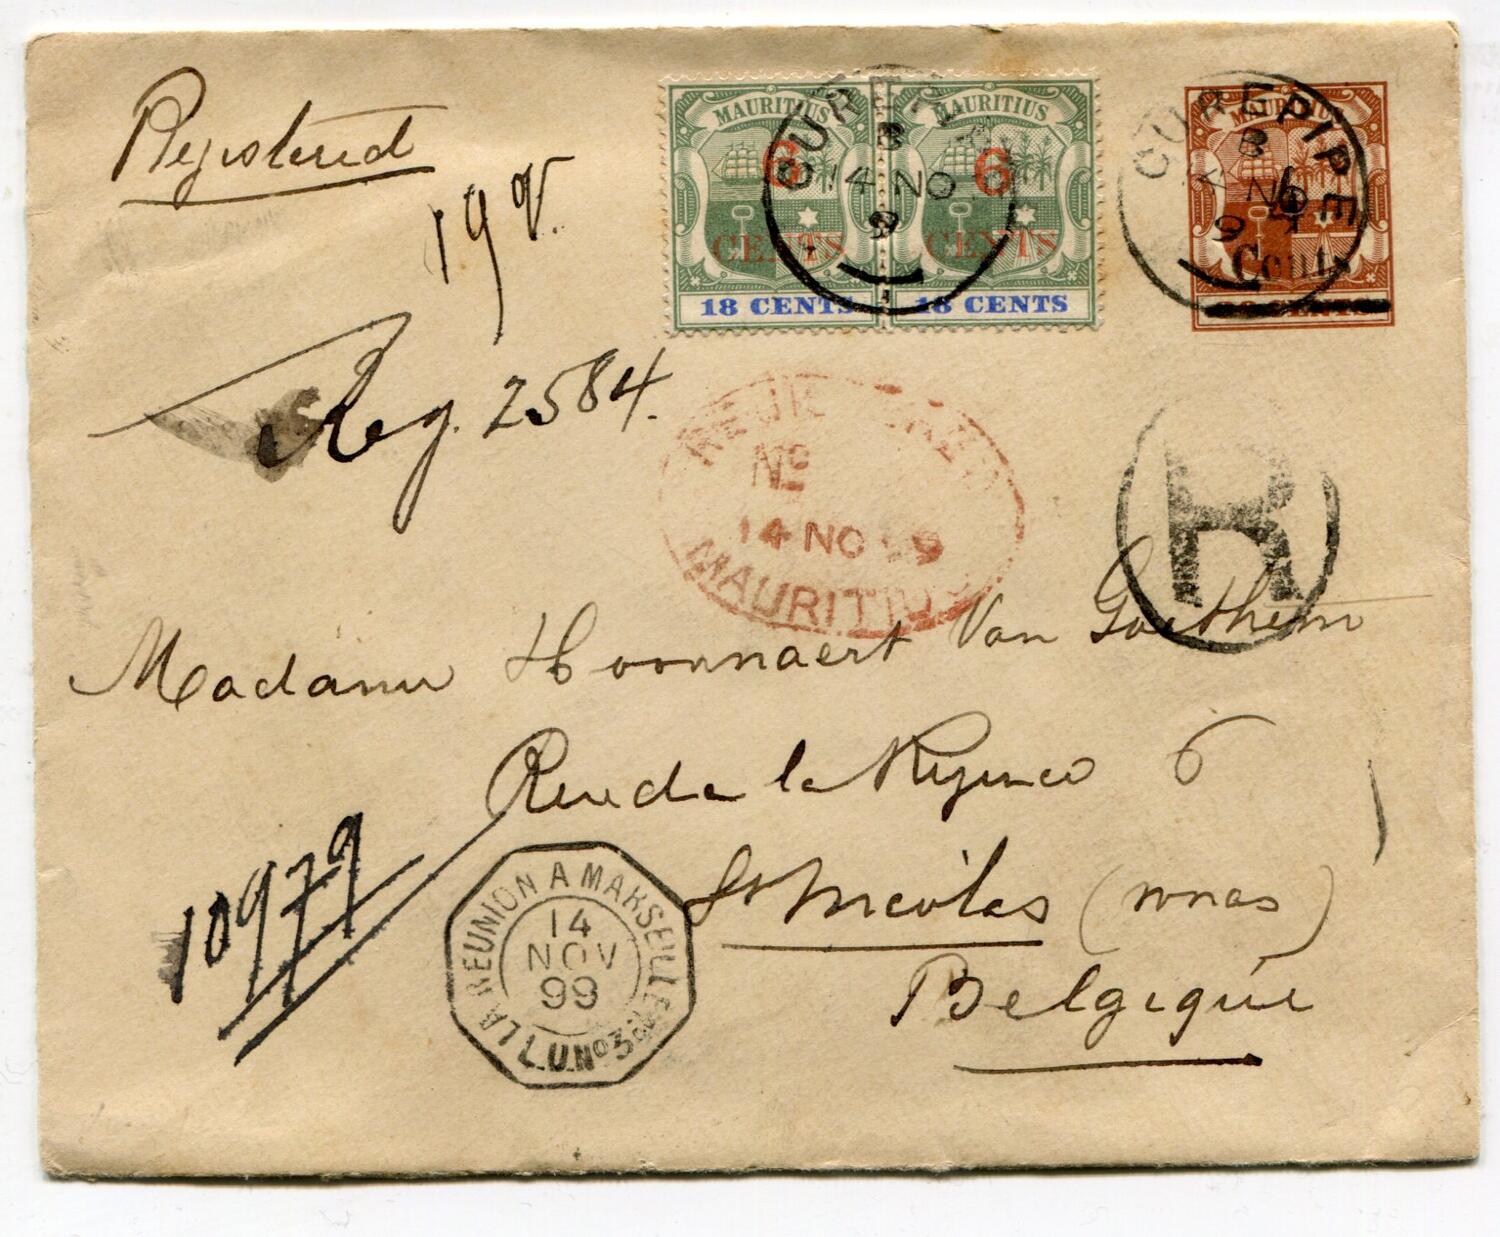 Registered
19
MAURITIUS
6
CENTS
18 CENTS
MAURITIUS
6
CENTS
18 CENTS
CUREPIPE
B
14 NO
9
MAURITIUS
6
Cents
36 CENTS
CUREPIPE
B
NO
9
Reg. 2584.
REGISTERED
No
14 NO 99
MAURITIUS
R
Madame Hoornaert Van Goethem
Rue de la Régence 6
St Nicolas (Waas)
Belgique
10979
LA REUNION A MARSEILLE
14
NOV
99
L.U. No 3